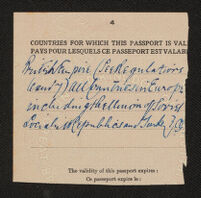 4
COUNTRIES FOR WHICH THIS PASSPORT IS VAL
PAYS POUR LESQUELS CE PASSEPORT EST VALAB
British Empire (See Regulations
and 7) all Countries in Europe
including the Union of Soviet
Socialist Republics and Turkey
The validity of this passport expires:
Ce passeport expire le: